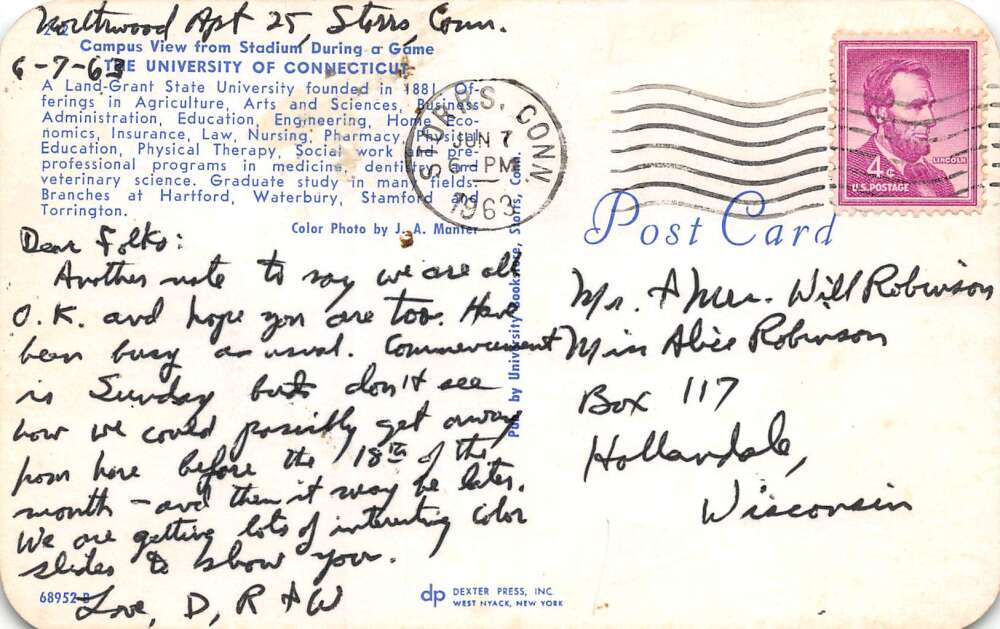 Northwood Apt 25, Storrs, Conn.
6-7-63
Campus View from Stadium During a Game
THE UNIVERSITY OF CONNECTICUT
A Land-Grant State University founded in 1881. Of-
ferings in Agriculture, Arts and Sciences, Business
Administration, Education, Engineering, Home Eco-
nomics, Insurance, Law, Nursing, Pharmacy, Physical
Education, Physical Therapy, Social work and pre-
professional programs in medicine, dentistry and
veterinary science. Graduate study in many fields.
Branches at Hartford, Waterbury, Stamford and
Torrington.
Color Photo by J. A. Manter
Dear Folks:
Another note to say we are all
O.K. and hope you are too. Have
been busy as usual. Commencement
is Sunday but don't see
how we could possibly get away
from here before the 18th of the
month - and then it may be later.
We are getting lots of interesting color
slides to show you.
Love, D, R + W
68952-B
STORRS, CONN.
JUN 7
6 - PM
1963
4¢
LINCOLN
U.S. POSTAGE
Post Card
Pub. by University Bookstore, Storrs, Conn.
Mr. + Mrs. Will Robinson
Miss Alice Robinson
Box 117
Hollandale,
Wisconsin
dp DEXTER PRESS, INC.
WEST NYACK, NEW YORK